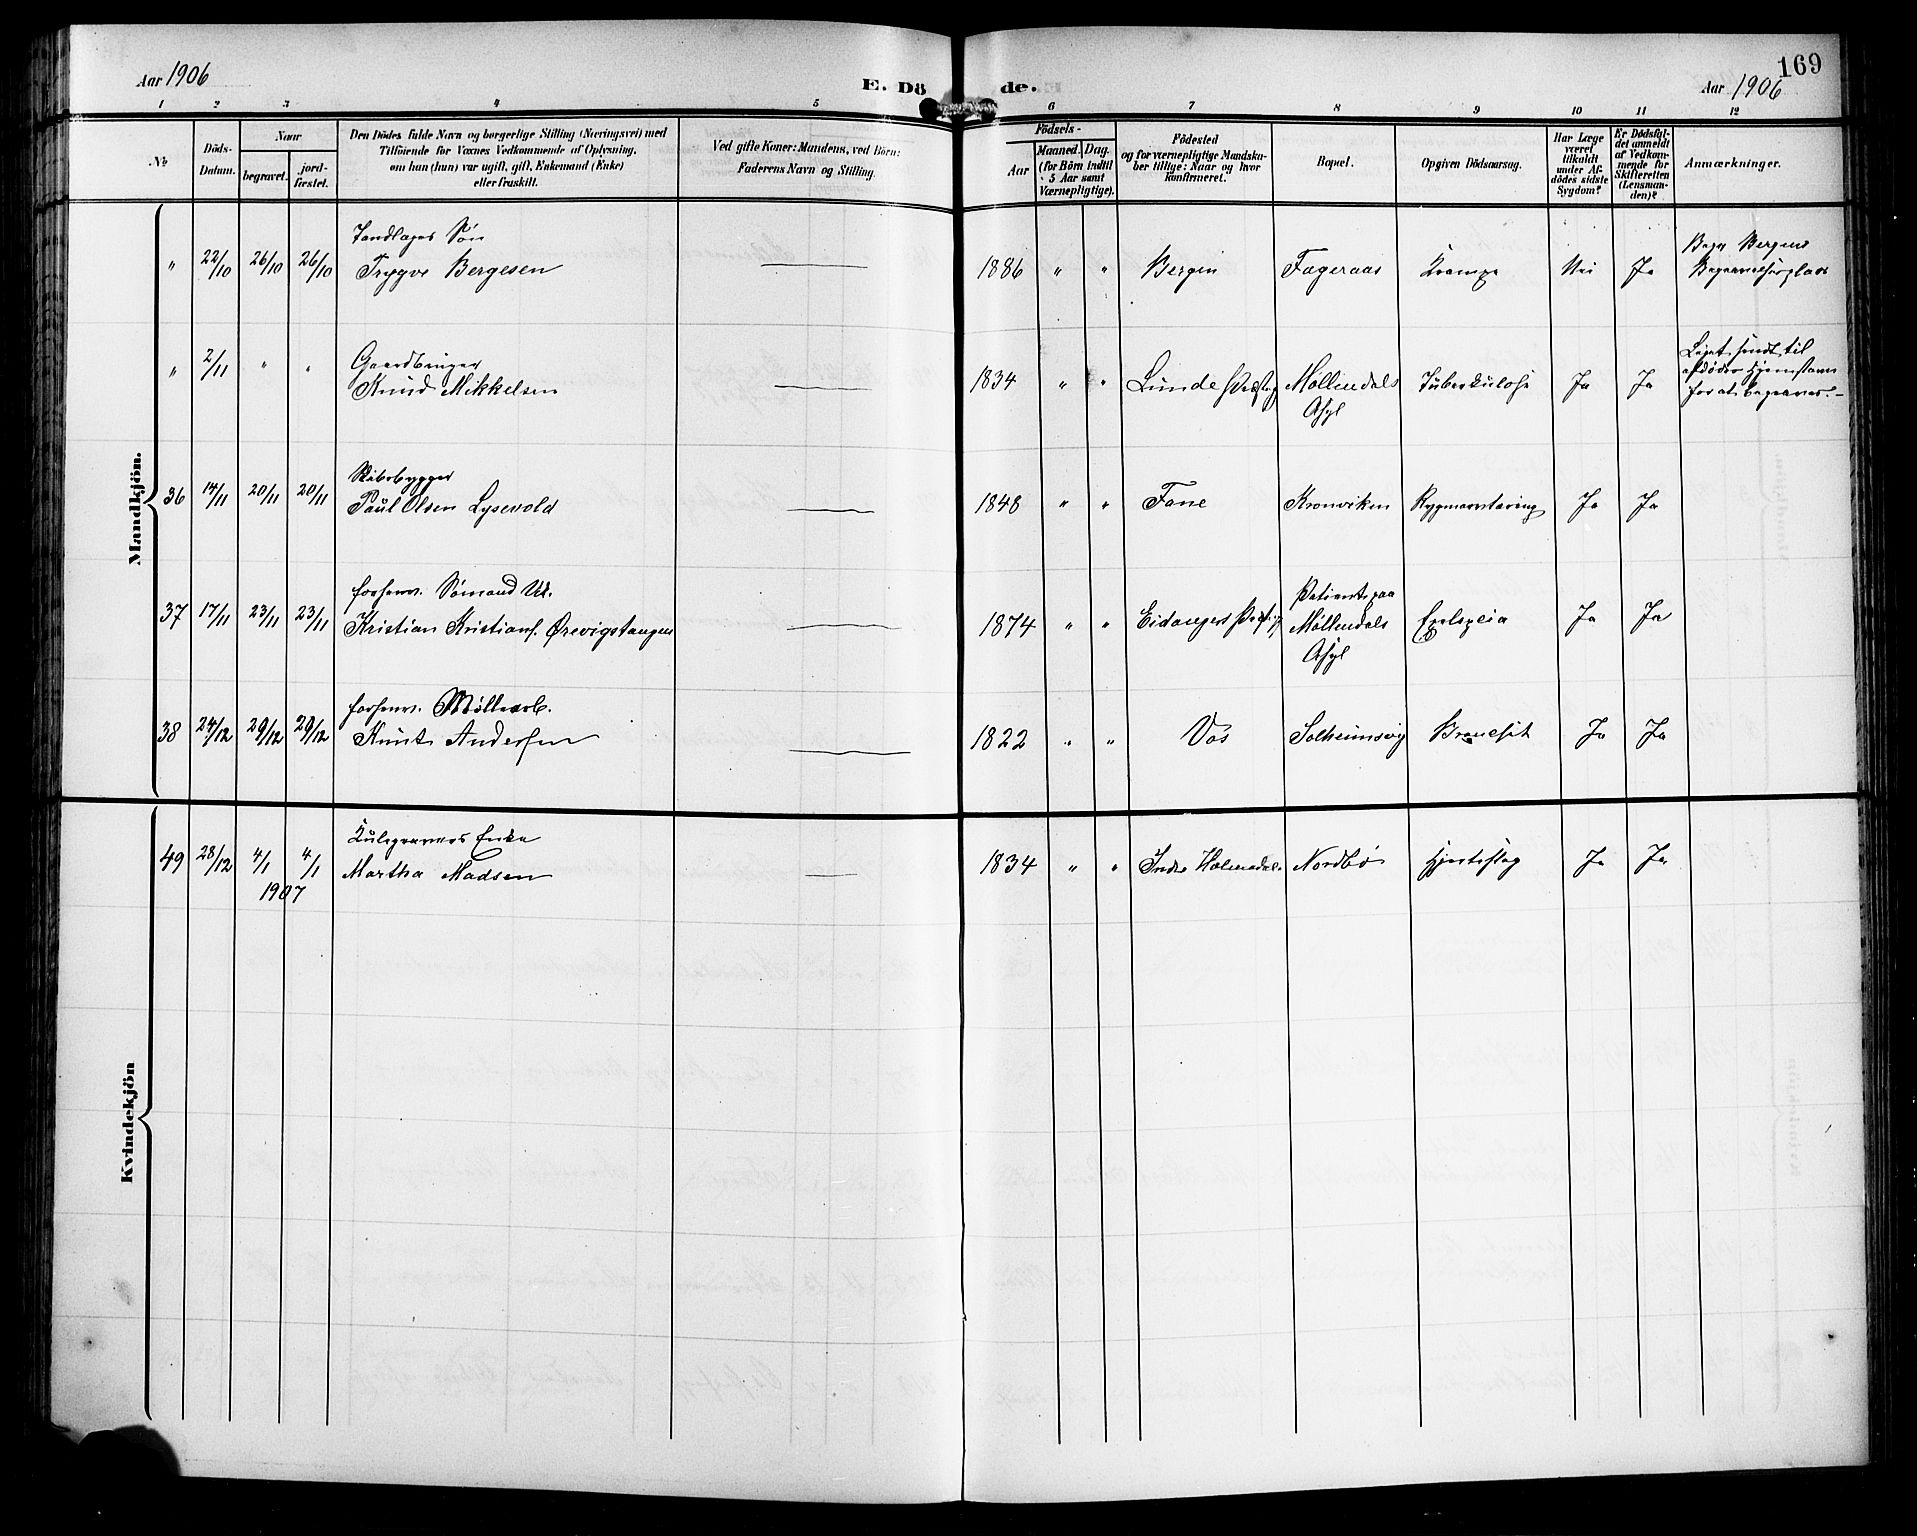 Aar 1906
E. Döde.
169
Aar 1906
1 2 3 4 5 6 7 8 9 10 11 12
No
Döds-Datum.
Naar
begravet.
jord-fæstet.
Den Dödes fulde Navn og borgerlige Stilling (Næringsvei) med
Tilföiende for Voxnes Vedkommende af Oplysning,
om han (hun) var ugift, gift, Enkemand (Enke)
eller fraskilt.
Ved gifte Koner: Mandens, ved Börn:
Faderens Navn og Stilling.
Födsels-
Aar
Maaned. Dag.
(for Börn indtil
5 Aar samt
Værnepligtige).
Födested
og for værnepligtige Mandska-
ber tillige: Naar og hvor
konfirmeret.
Bopæl.
Opgiven Dödsaarsag.
Har Læge
været
tilkaldt
under Af-
dödes sidste
Sygdom?
Er Dödsfal-
det anmeldt
af Vedkom-
mende for
Skifteretten
(Lensman-
den)?
Anmærkninger.
Mandkjön.
" 22/10 26/10 26/10 Tandlæges Søn
Trygve Bergesen
1886 " " Bergen Fageraas Krampe Nei Ja
Bergens
" 2/11 " " Gaardbruger
Knud Mikkelsen
1834 " " Lunde Møllendals
Asyl
Tuberkulose Ja Ja
Liget sendt til
afdødes Hjemstavn
for at begraves.
36 14/11 20/11 20/11 Skibsbygger
Paul Olsen Lysevold
1848 " " Fane Kronviken Rygmarvstæring Ja Ja
37 17/11 23/11 23/11 forhenv. Sømand
Kristian Kristians. Ørevigstangen
1874 " " Eidanger Patient paa
Møllendals
Asyl
Ja Ja
38 24/12 29/12 29/12 forhenv. Møllearb.
Knut Andersen
1822 " " Vos Solheimsvig Ja Ja
Kvindekjön
49 28/12 4/1 4/1 Enke
1907
Martha Madsen
1834 " " Indre Holmedal Nordbø Hjerteslag Ja Ja